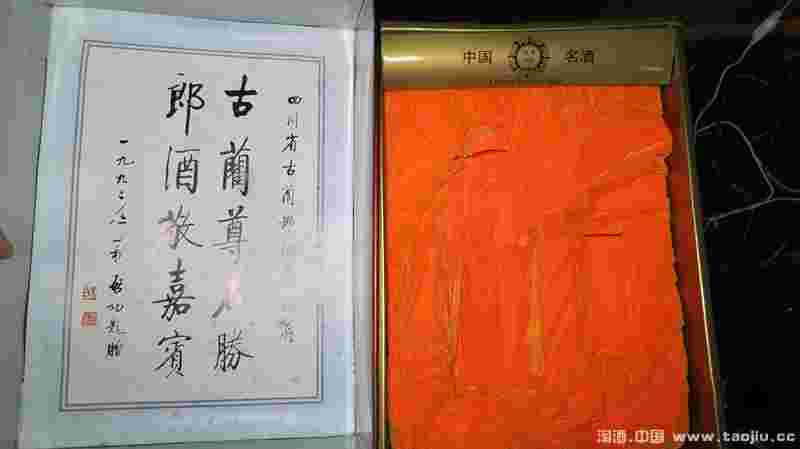 四川省古蔺郎
古蔺尊 勝
郎酒敬嘉賓
一九九
啓功題贈
中国 名酒
淘酒.中国 www.taojiu.cc